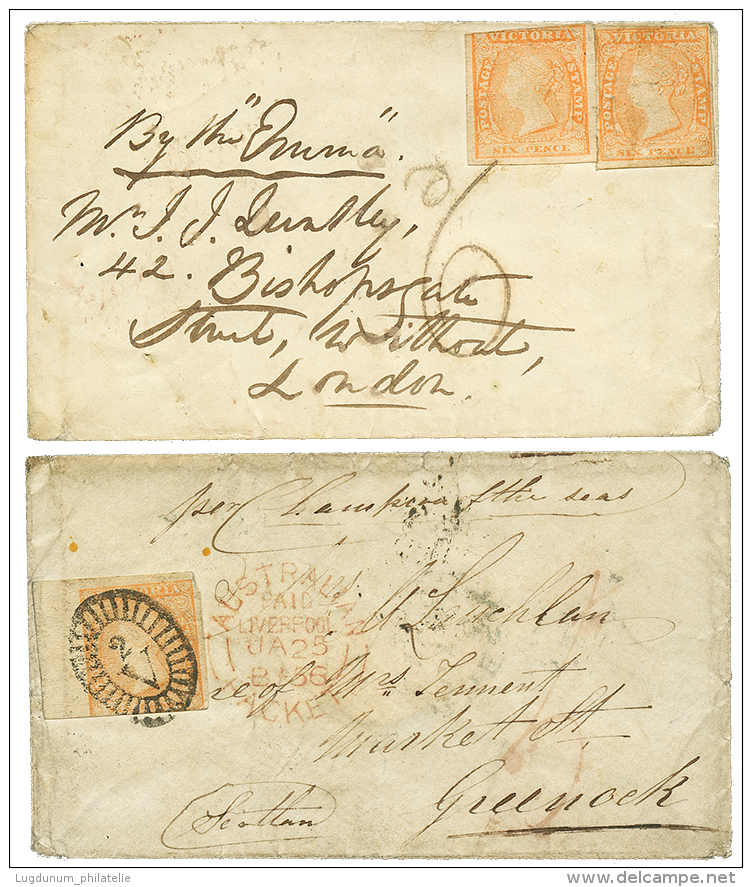 VICTORIA
POSTAGE
STAMP
SIX PENCE
VICTORIA
POSTAGE
STAMP
SIX PENCE
By the "Emma".
Mr. J. J.
42. Bishopsgate
Street, Without,
London.
6
per Champion of the seas
AUSTRALIAN
PAID
LIVERPOOL
JA 25
56
PACKET
Care of Mrs Tennent
Market St.
Greenock
Scotland
Lugdunum_philatelie
delcampe.net